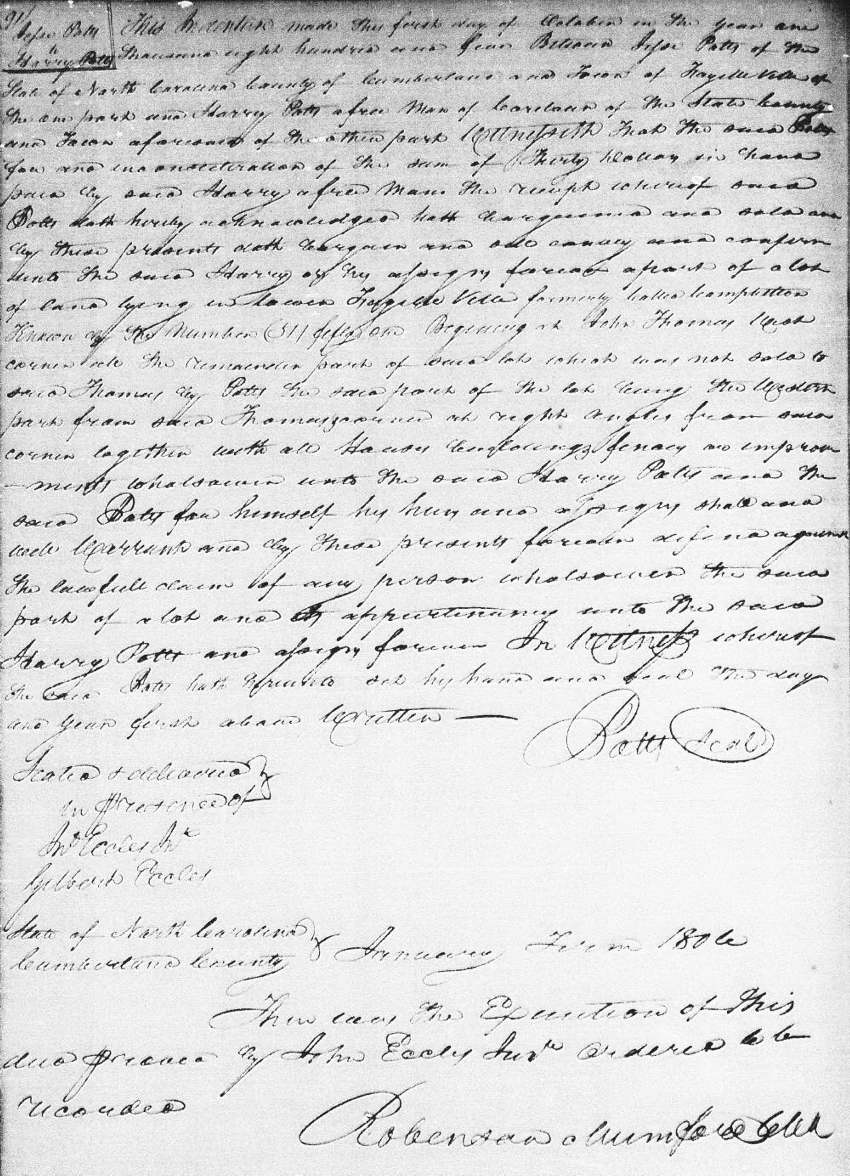 91
Jesse Potts
to
Harry Potts
This Indenture made this first day of October in the year one
Thousand eight hundred and four Between Jesse Potts of the
State of North Carolina County of Cumberland and Town of Fayetteville of
the one part and Harry Potts a free Man of Colour of the State County
and Town aforesaid of the other part Witnesseth That the said Potts
for and in consideration of the sum of Thirty Dollars in hand
paid by said Harry a free Man the receipt whereof said
Potts doth hereby acknowledges hath bargained and sold and
by these presents doth bargain and sell convey and confirm
unto the said Harry or his assigns forever a part of a lot
of land lying in lower Fayetteville formerly called Campbleton
Known by the Number (51) fifty one Begining at John Thomas West
corner the remainder part of said lot which was not sold to
said Thomas by Potts the said part of the lot being the Western
part from said Thomas's corner at right Angles from said
corner together with all Houses buildings fences or improve
-ments whatsoever unto the said Harry Potts and the
said Potts for himself his heirs and assigns shall and
will Warrant and by these presents forever defend against
the lawfull claim of any person whatsoever the said
part of a lot and its appurtinancys unto the said
Harry Potts and assigns forever In Witness whereof
the said Potts hath hereunto set his hand and seal the day
and year first above Written —
Potts Seal
Sealed & delivered
in presence of
Jno Eccles Jnr
Gilbert Eccles
State of North Carolina
Cumberland County
January Term 1806
Then was the Execution of this
deed proved by John Eccles Junr Ordered to be
recorded
Robenson Mumford Clk